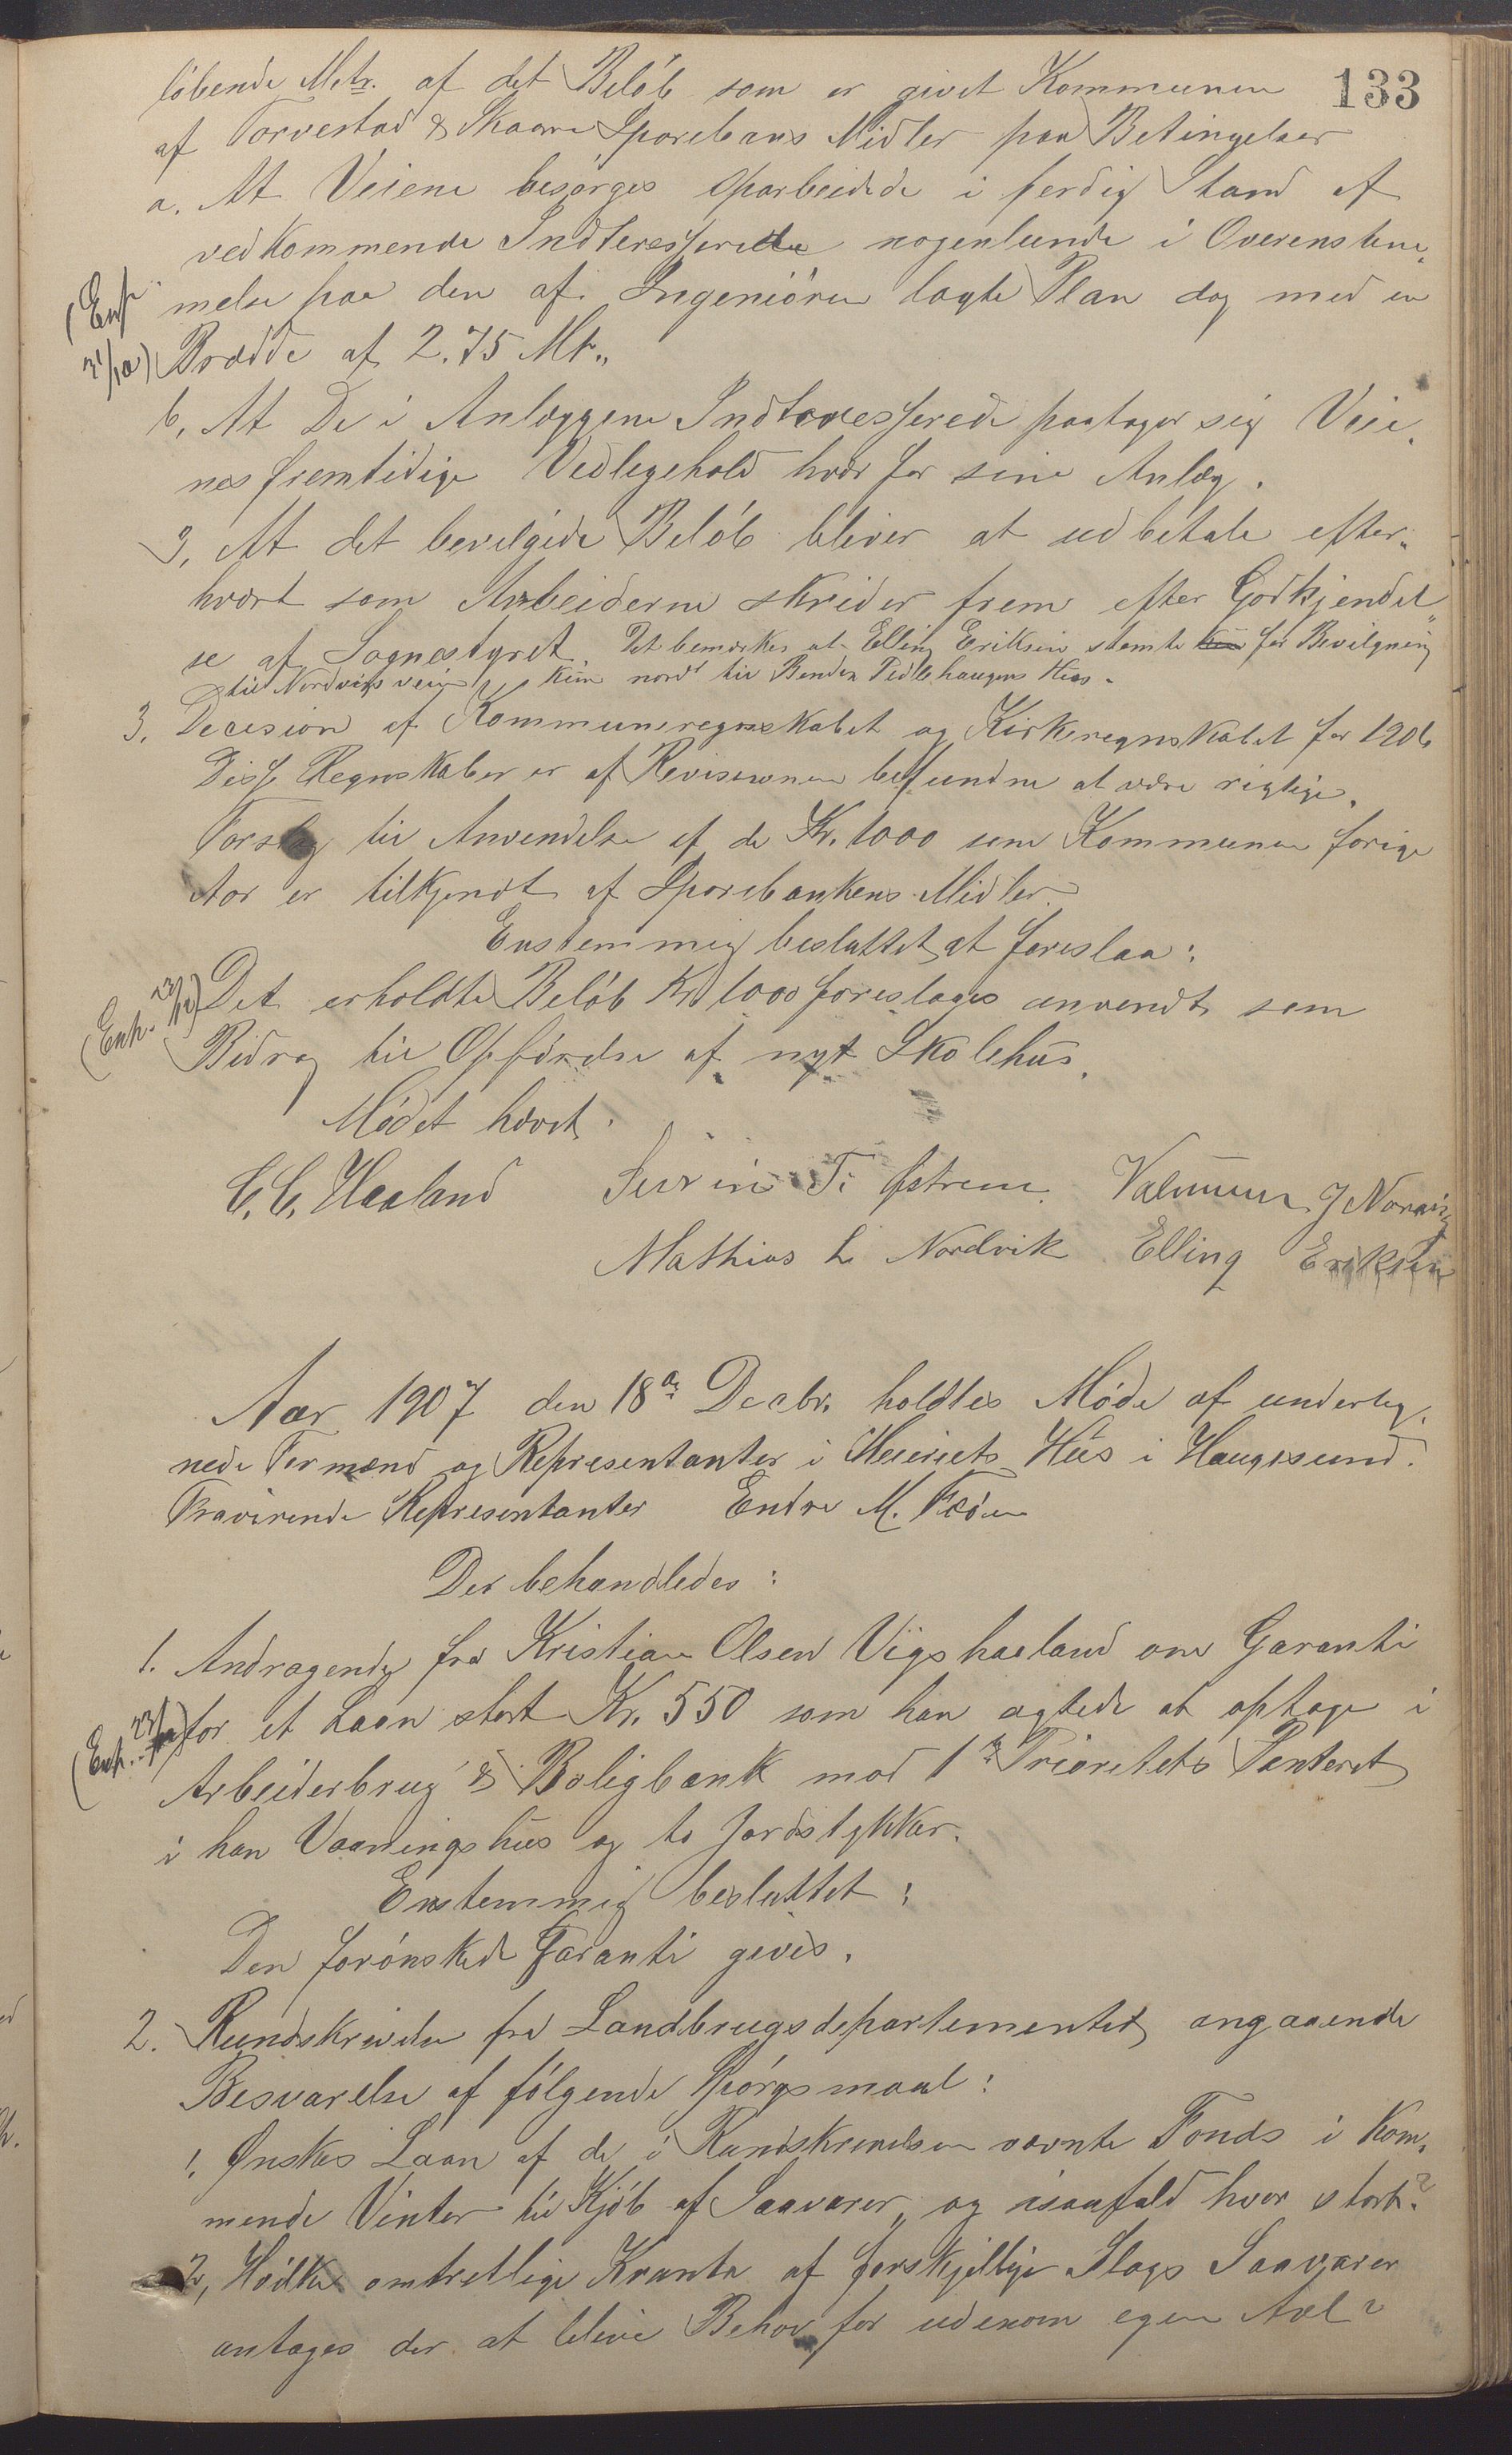 133
løbende Metr. af det Beløb som er givet Kommunen
af Torvestad & Skaare Sparebans Midler paa Betingelser
a. At Veiene besørges oparbeidede i ferdig Stand af
vedkommende Indteresserede nogenlunde i Overenstem„
melse paa den af Ingeniøren lagte Plan dog med en
(Exp.
31/12)
Brædde af 2.75 Mtr„
b, At De i Anlæggene Indteresserede paatager sig Veie„
nes fremtidige Vedlegehold hver for sine Anlæg.
3, At det bevilgede Beløb bliver at udbetale efter„
hvert som Arbeiderne skrider frem efter Godkjendel„
se af Sognestyret. Det bemerkes at Elling Eriksen stemte kun for Bevilgning
til Nordviks veien kun nord til Bendix Fedlehaugens Hus.
3. Decision af Kommuneregnskabet og Kirkeregnskabet for 1906
Disse Regnskaber er af Revisionen befundne at være rigtige.
Forslag til Anvendelse af de Kr. 1000 som Kommunen forige
Aar er tilkjendt af Sparebankens Midler.
Enstemmig besluttet at foreslaa:
(Exp. 23/12)
Det erholdte Beløb Kr 1000 foreslages anvendt som
Bidrag til Opførelse af nyt Skolehus.
Mødet hævet.
C. C. Haaland Severin T. Østrem Valemun J Norvig
Mathias L Nordvik Elling Eriksen
Aar 1907 den 18de Decbr. holdtes Møde af underteg„
nede Formænd og Representanter i Meieriets Hus i Haugesund.
Fraværende Representanter Endre M. Fæøen
Der behandledes:
1. Andragende fra Kristian Olsen Vigshaaland om Garanti
(Exp. 23/12)
for et Laan stort Kr. 550 som han agtede at optage i
Arbeiderbrug & Boligbank mod 1ste Prioritets Panteret
i han Vaaningshus og to Jordstykker.
Enstemmig besluttet:
Den forønskede Garanti gives.
2. Rundskrivelse fra Landbrugsdepartementet angaaende
Besvarelse af følgende Spørgsmaal:
1. Ønskes Laan af de i Rundskrivelsen nævnte Fonds i Kom„
mende Vinter til Kjøb af Saavarer, og isaafald hvor stort?
2, Hvilke omtretlige Kvanta af forskjellige Slags Saavarer
antages der at blive Behov for udenom egen Avl?